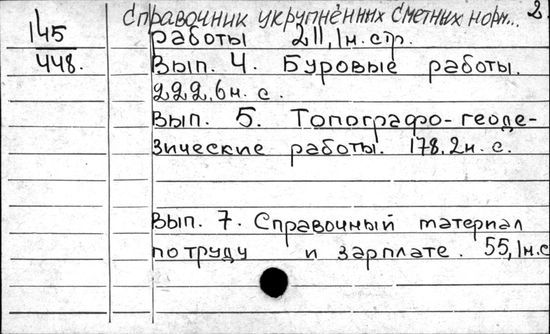 Справочник укрупнённых сметных норм... 2
145
448.
работы 211, 1н.стр.
Вып. 4. Буровые работы.
222,6н.с.
Вып. 5. Топографо-геоде-
зические работы. 178.2н.с.
Вып. 7. Справочный материал
по труду и зарплате. 55,1н.с